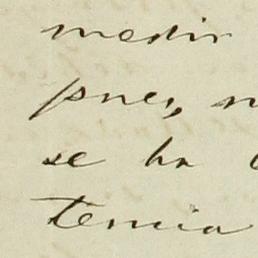 medir
pues,
se ha
tenia